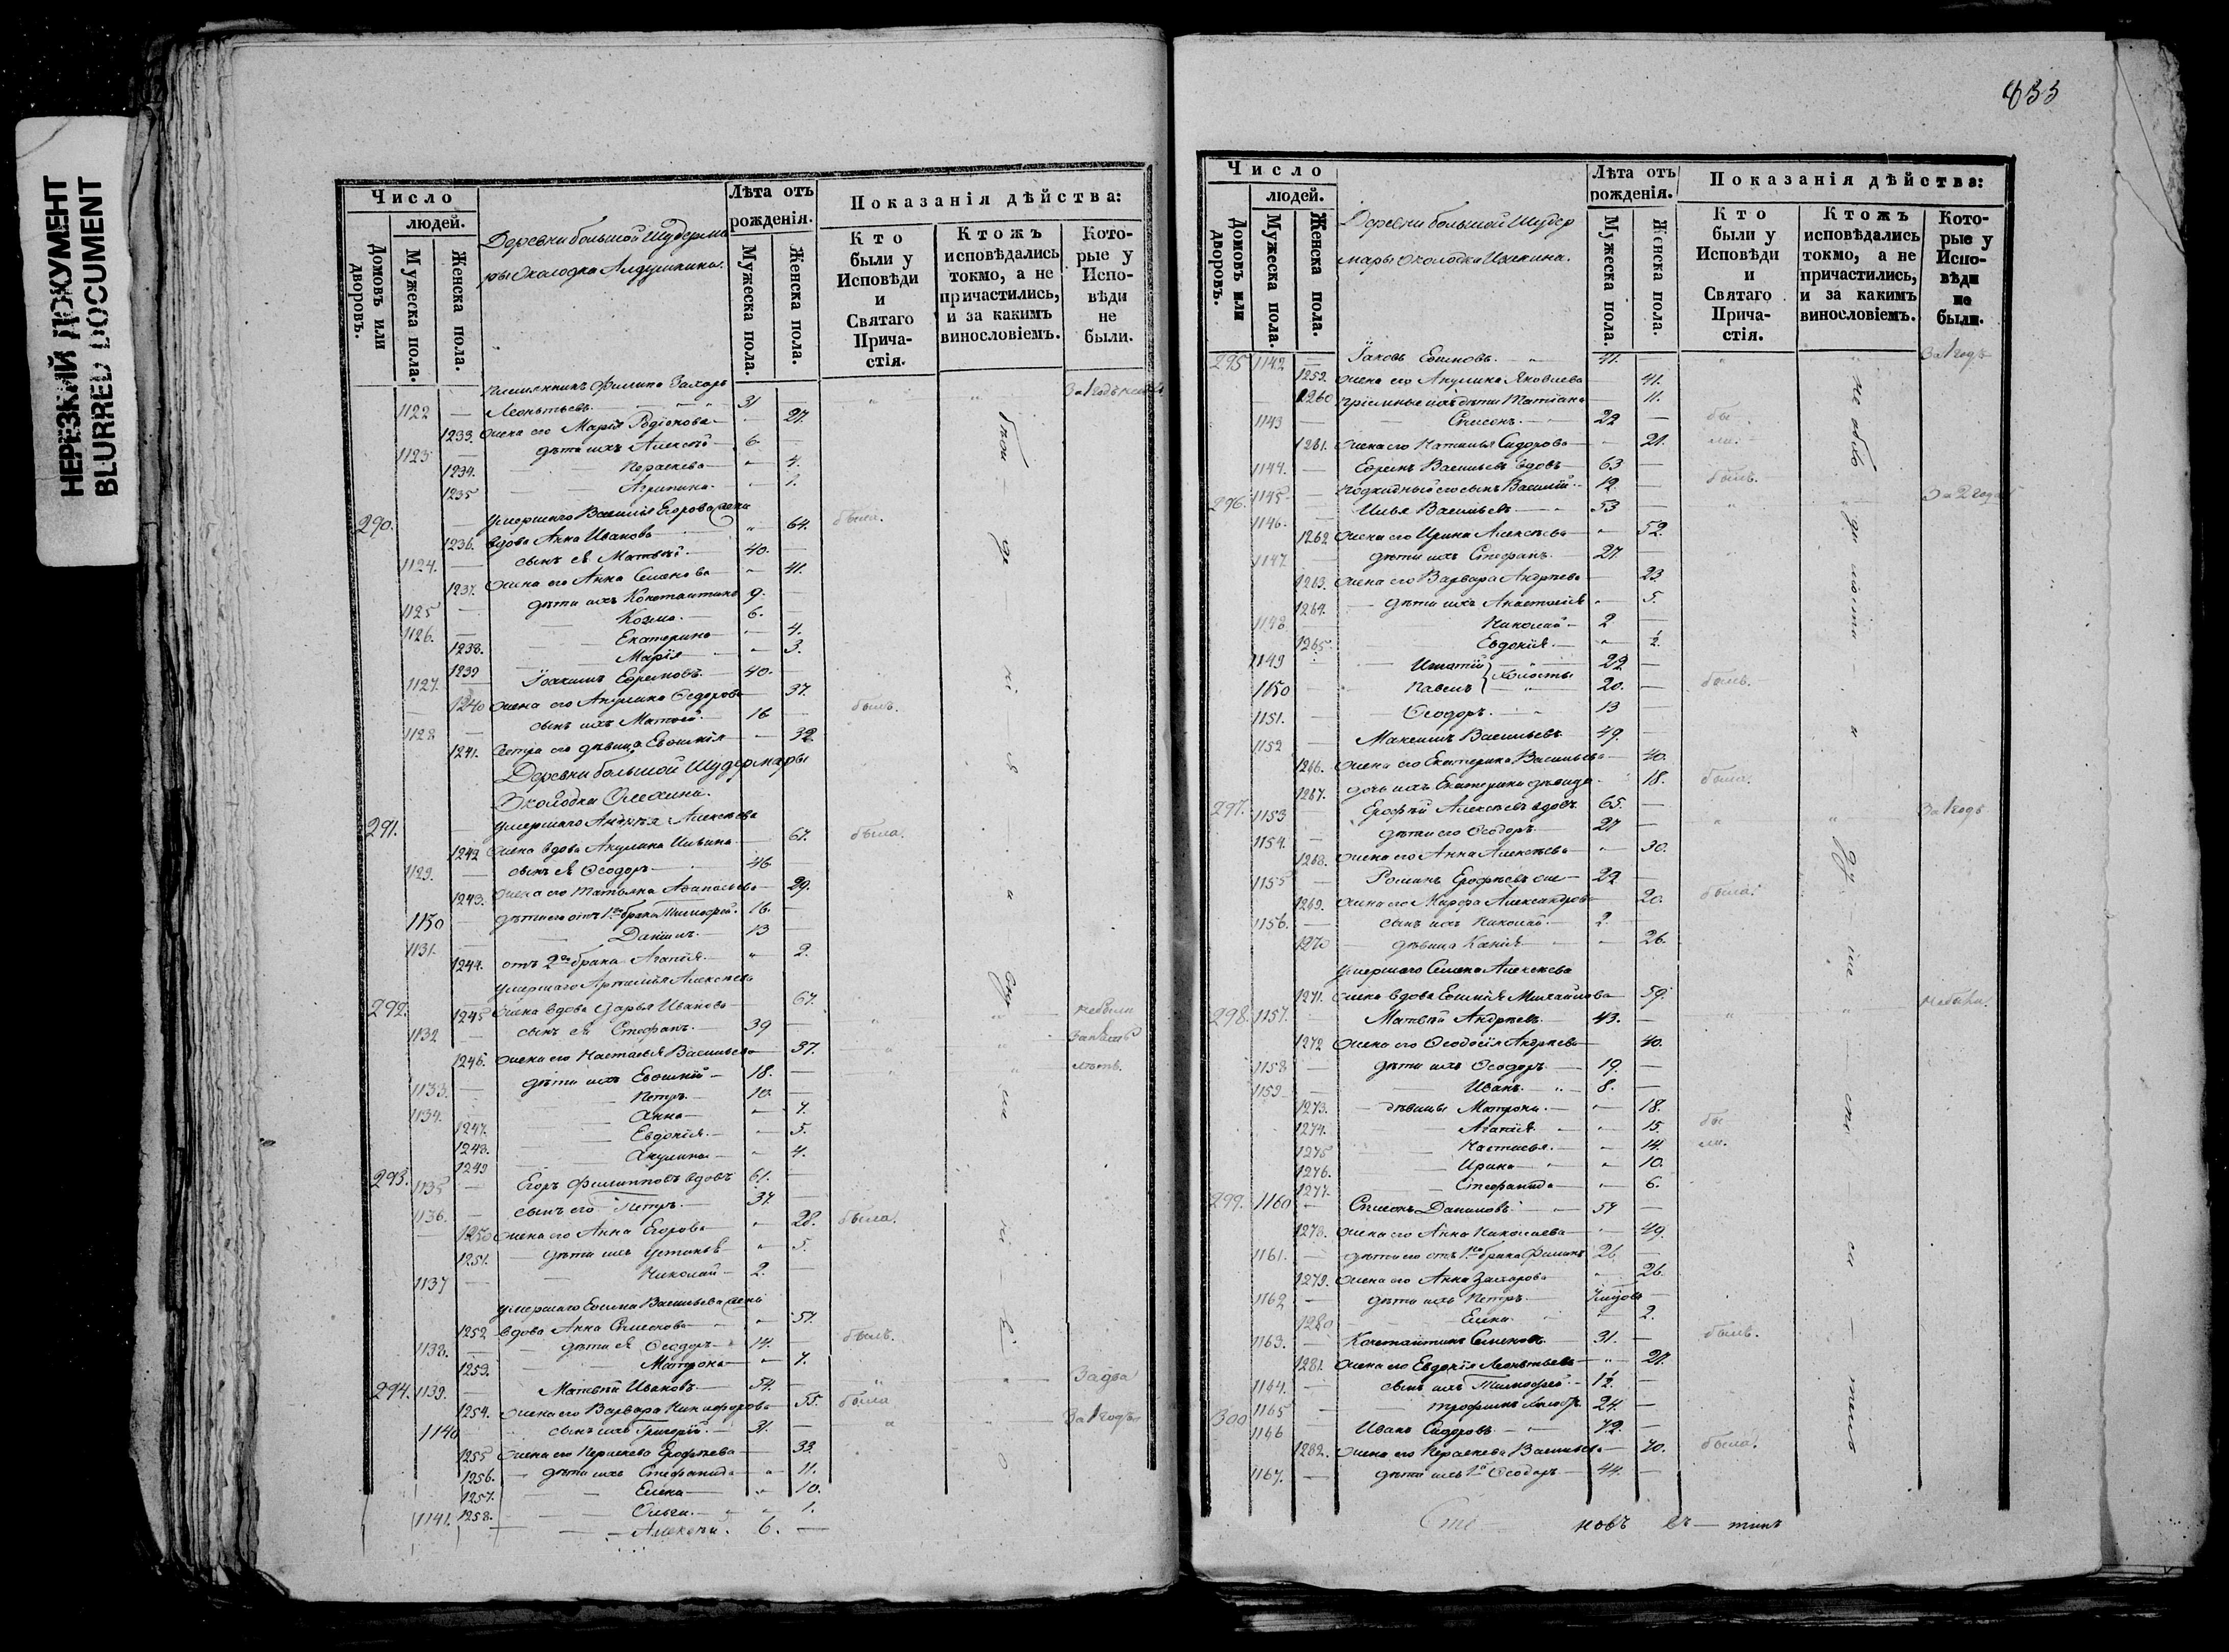 НЕРЕЗКИЙ ДОКУМЕНТ
BLURRED DOCUMENT
Число
людей.
Домовъ или дворовъ.
Мужеска пола.
Женска пола.
Деревни большой Шудерма
ры Околодка Алдушкина.
Лѣта отъ рожденія.
Мужеска пола.
Женска пола.
Показанія дѣйства:
Кто были у Исповѣди и Святаго Прича-стія.
Ктожъ исповѣдались токмо, а не причастились, и за какимъ винословіемъ.
Кото-рые у Испо-вѣди не были.
племянникъ Филипа Захаръ
1122 — Леонтьевъ 31 —
1233. жена его Марія Родіонова — 27.
1123 — дѣти ихъ Алексѣй 6. —
1234. Параскева — 4.
1235 Агрипина — 1.
290. умершаго Василія Егорова жена
1236. вдова Анна Иванова — 64. была.
1124. — сынъ ея Матвей 40. —
1237. жена его Анна Семенова — 41.
1125 — дѣти ихъ Константинъ 9. —
1126. — Козма 6. —
1238. Екатерина — 4.
1239 Марія — 3.
1127. Іоакимъ Ефремовъ 40. —
1240 жена его Акулина Ѳедорова 37.
1128 сынъ ихъ Матвей 16 — былъ.
1241. Сестра его дѣвица Евфимія — 32
Деревни большой Шудермары
Околодка Олехина.
291. умершаго Андрея Алексѣева
1242 жена вдова Акулина Ильина 67. была.
1129. — сынъ ея Ѳеодоръ 46
1243. жена его Татьяна Афанасьева 29.
1130 дѣти его отъ 1го брака Тимофей. 16. —
1131. Даніилъ 13
1244. отъ 2го брака Агапія — 2.
умершаго Артемія Алексѣева
292. 1245 жена вдова Дарья Иванова 67.
1132 — сынъ ея Стефанъ 39 —
1246. жена его Настасья Васильева 37.
1133. — дѣти ихъ Евфимій 18. —
1134. Петръ 10. —
1247. Анна — 7.
1248. Евдокія — 5.
1249 Акулина — 4.
293. 1135 — Егоръ Филипповъ вдовъ 61.
1136. — сынъ его Петръ 37.
1250 жена его Анна Егорова — 28. была.
1251. дѣти ихъ Устинья — 5.
1137 Николай 2. —
умершаго Ефима Васильева жена
1252 вдова Анна Симеонова — 57.
1138. — дѣти ея Ѳеодоръ 14. — былъ.
1253. Матрона — 7.
294. 1139. — Матвѣй Ивановъ 54. —
1254. жена его Варвара Никифорова 55. была
1140 сынъ ихъ Григорій 31. — За 1 годъ
1255 жена его Параскева Ерофѣева 33.
1256. — дѣти ихъ Стефанида — 11.
1257. Елена — 10.
1258. Ольга — 1.
1141. Алексѣй. 6. —
833
Число
людей.
Домовъ или дворовъ.
Мужеска пола.
Женска пола.
Деревни большой Шудер
мары Околодка
Лѣта отъ рожденія.
Мужеска пола.
Женска пола.
Показанія дѣйства:
Кто были у Исповѣди и Святаго Прича-стія.
Ктожъ исповѣдались токмо, а не причастились, и за какимъ винословіемъ.
Кото-рые у Испо-вѣди не были.
295 1142 — Іаковъ Ефимовъ 41. — За 1 годъ
1259. жена его Акулина Яковлева 41.
1260 пріемные ихъ дѣти Татіана 11.
1143 Симеонъ 22 — бы
1261. жена его Наталья Сидорова — 21. ли.
1144. — Ефремъ Васильевъ вдовъ 63 —
1145 — подкидный его сынъ Василій 12. — былъ.
296. 1146. Илья Васильевъ 53 — За 2 года
1262 жена его Ирина Алексѣева — 52.
1147. дѣти ихъ Стефанъ 27 —
1263. жена его Варвара Андрѣева 23.
1264. дѣти ихъ Анастасія — 5.
1148 Николай 2 —
1265. Евдокія — ½.
1149 Игнатій 22 —
1150 Павелъ холосты 20. — былъ.
1151. — Ѳеодоръ 13 —
1152 — Максимъ Васильевъ 49. —
1266. жена его Екатерина Васильева 40.
1267. дочь ихъ Екатерина дѣвица 18. была.
297. 1153 Ерофѣй Алексѣевъ вдовъ 65. — За 1 годъ
1154. — дѣти его Ѳеодоръ 27 —
1268. жена его Анна Алексѣева — 30.
1155 — Романъ Ерофѣевъ 22 —
1269. жена его Марфа Александрова 20. была.
1156. — сынъ ихъ Николай 2. —
1270 дѣвица Ксенія — 26.
умершаго Семена Алексѣева
1271. жена вдова Ефимія Михайлова 59.
298. 1157. — Матвѣй Андрѣевъ 43. —
1272 жена его Ѳеодосія Андрѣева 40.
1158 дѣти ихъ Ѳеодоръ 19. —
1159 Иванъ 8. —
1273. дѣвицы Матрона — 18.
1274. Агапія — 15. бы
1275 Настасья — 14. ли.
1276. Ирина — 10.
1277. Стефанида — 6.
299. 1160 — Симеонъ Даниловъ 57 —
1278. жена его Анна Николаева — 49.
1161. — дѣти его отъ 1го брака Филипъ 26. —
1279. жена его Анна Захарова — 26.
1162 — дѣти ихъ Петръ —
1280 Елена — 2.
1163. — Константинъ Семеновъ 31. — былъ.
1281. жена его Евдокія Леонтьева — 27.
1164. — сынъ ихъ Тимофей 1½. —
1165 Трофимъ 24. —
300 1166 Иванъ Сидоровъ 72. —
1282. жена его Параскева Васильева 70. была.
1167. — дѣти ихъ Ѳеодоръ 44. —
новъ